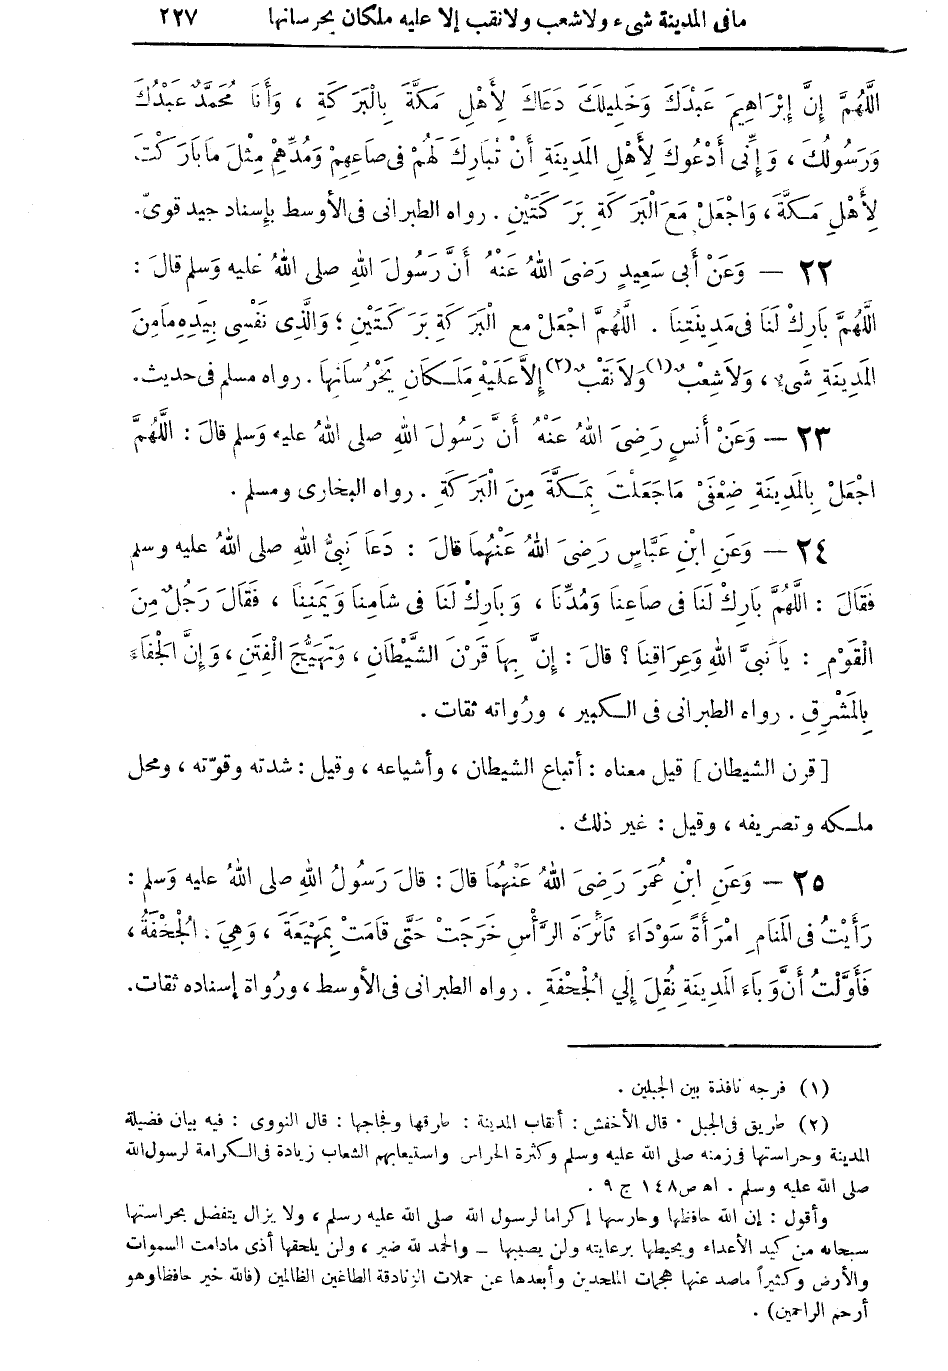 مافى المدينة شىء ولاشعب ولانقب إلا عليه ملكان يحرسانها ٢٢٧
اللَّهُمَّ إِنَّ إِبْرَاهِيمَ عَبْدَكَ وَخَلِيلَكَ دَعَاكَ لِأَهْلِ مَكَّةَ بِالْبَرَكَةِ ، وَأَنَا مُحَمَّدٌ عَبْدُكَ
وَرَسُولُكَ ، وَإِنِّى أَدْعُوكَ لِأَهْلِ المَدِينَةِ أَنْ تُبَارِكَ لَهُمْ فى صَاعِهِمْ وَمُدِّهِمْ مِثْلَ مَا بَارَكْتَ
لِأَهْلِ مَكَّةَ ، وَاجْعَلْ مَعَ الْبَرَكَةِ بَرَكَتَيْنِ . رواه الطبرانى فى الأوسط بإسناد جيد قوىّ .
٢٢ — وَعَنْ أَبى سَعِيدٍ رَضِىَ اللهُ عَنْهُ أَنَّ رَسُولَ اللهِ صلى اللهُ عليه وَسلم قالَ :
اللَّهُمَّ بَارِكْ لَنَا فى مَدِينَتِنَا . اللَّهُمَّ اجْعَلْ مع الْبَرَكَةِ بَرَكَتَيْنِ ؛ وَالَّذِى نَفْسِى بِيَدِهِ مامِنَ
المَدِينَةِ شَىْءٌ ، وَلاَ شِعْبٌ (١) وَلاَ نَقْبٌ (٢) إِلاَّ عَلَيْهِ مَلَكَانِ يَحْرُسَانِهَا . رواه مسلم فى حديث .
٢٣ — وَعَنْ أَنَسٍ رَضِىَ اللهُ عَنْهُ أَنَّ رَسُولَ اللهِ صلى اللهُ عليه وَسلم قالَ : اللَّهُمَّ
اجْعَلْ بِالْمَدِينَةِ ضِعْفَىْ مَا جَعَلْتَ بِمَكَّةَ مِنَ الْبَرَكَةِ . رواه البخارى ومسلم .
٢٤ — وَعَنِ ابْنِ عَبَّاسٍ رَضِىَ اللهُ عَنْهُمَا قالَ : دَعَا نَبِىُّ اللهِ صلى اللهُ عليه وسلم
فَقَالَ : اللَّهُمَّ بَارِكْ لَنَا فى صَاعِنَا وَمُدِّنَا ، وَبَارِكْ لَنَا فى شَامِنَا وَيَمَنِنَا ، فَقَالَ رَجُلٌ مِنَ
الْقَوْمِ : يَا نَبِىَّ اللهِ وَعِرَاقِنَا ؟ قالَ : إِنَّ بِهَا قَرْنَ الشَّيْطَانِ ، وَتَهَيُّجَ الْفِتَنِ ، وَإِنَّ الْجَفَاءَ
بِالْمَشْرِقِ . رواه الطبرانى فى الكبير ، ورُواته ثقات .
[قرن الشيطان] قيل معناه : أتباع الشيطان ، وأشياعه ، وقيل : شدته وقوّته ، ومحل
ملكه وتصريفه ، وقيل : غير ذلك .
٢٥ — وَعَنِ ابْنِ عُمَرَ رَضِىَ اللهُ عَنْهُمَا قالَ : قالَ رَسُولُ اللهِ صلى اللهُ عليه وَسلم :
رَأَيْتُ فى المَنَامِ امْرَأَةً سَوْدَاءَ ثَائِرَةَ الرَّأْسِ خَرَجَتْ حَتَّى قامَتْ بِمَهْيَعَةَ ، وَهِىَ . الْجُحْفَةُ ،
فَأَوَّلْتُ أَنَّ وَبَاءَ المَدِينَةِ نُقِلَ إِلَى الْجُحْفَةِ . رواه الطبرانى فى الأوسط ، ورُواة إسناده ثقات .
(١) فرجه نافذة بين الجبلين .
(٢) طريق فى الجبل . قال الأخفش : أنقاب المدينة : طرقها وفجاجها : قال النووى : فيه بيان فضيلة
المدينة وحراستها فى زمنه صلى الله عليه وسلم وكثرة الحراس واستيعابهم الشعاب زيادة فى الكرامة لرسول الله
صلى الله عليه وسلم . اه ص ١٤٨ ج ٩ .
وأقول : إن الله حافظها وحارسها إكراما لرسول الله صلى الله عليه وسلم ، ولا يزال يتفضل بحراستها
سبحانه من كيد الأعداء ويحيطها برعايته ولن يصيبها — والحمد لله ضير ، ولن يلحقها أذى مادامت السموات
والأرض وكثيراً ماصد عنها هجمات الملحدين وأبعدها عن حملات الزنادقة الطاغين الظالمين (فالله خير حافظا وهو
أرحم الراحمين) .